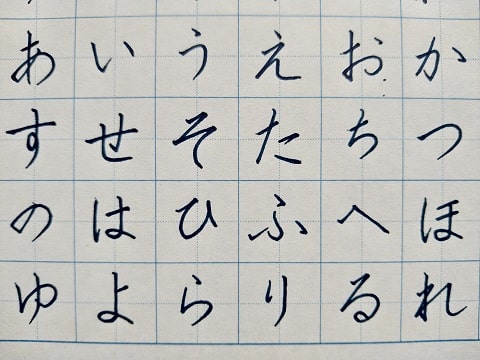 あいうえおか
すせそたちつ
のはひふへほ
ゆよらりるれ